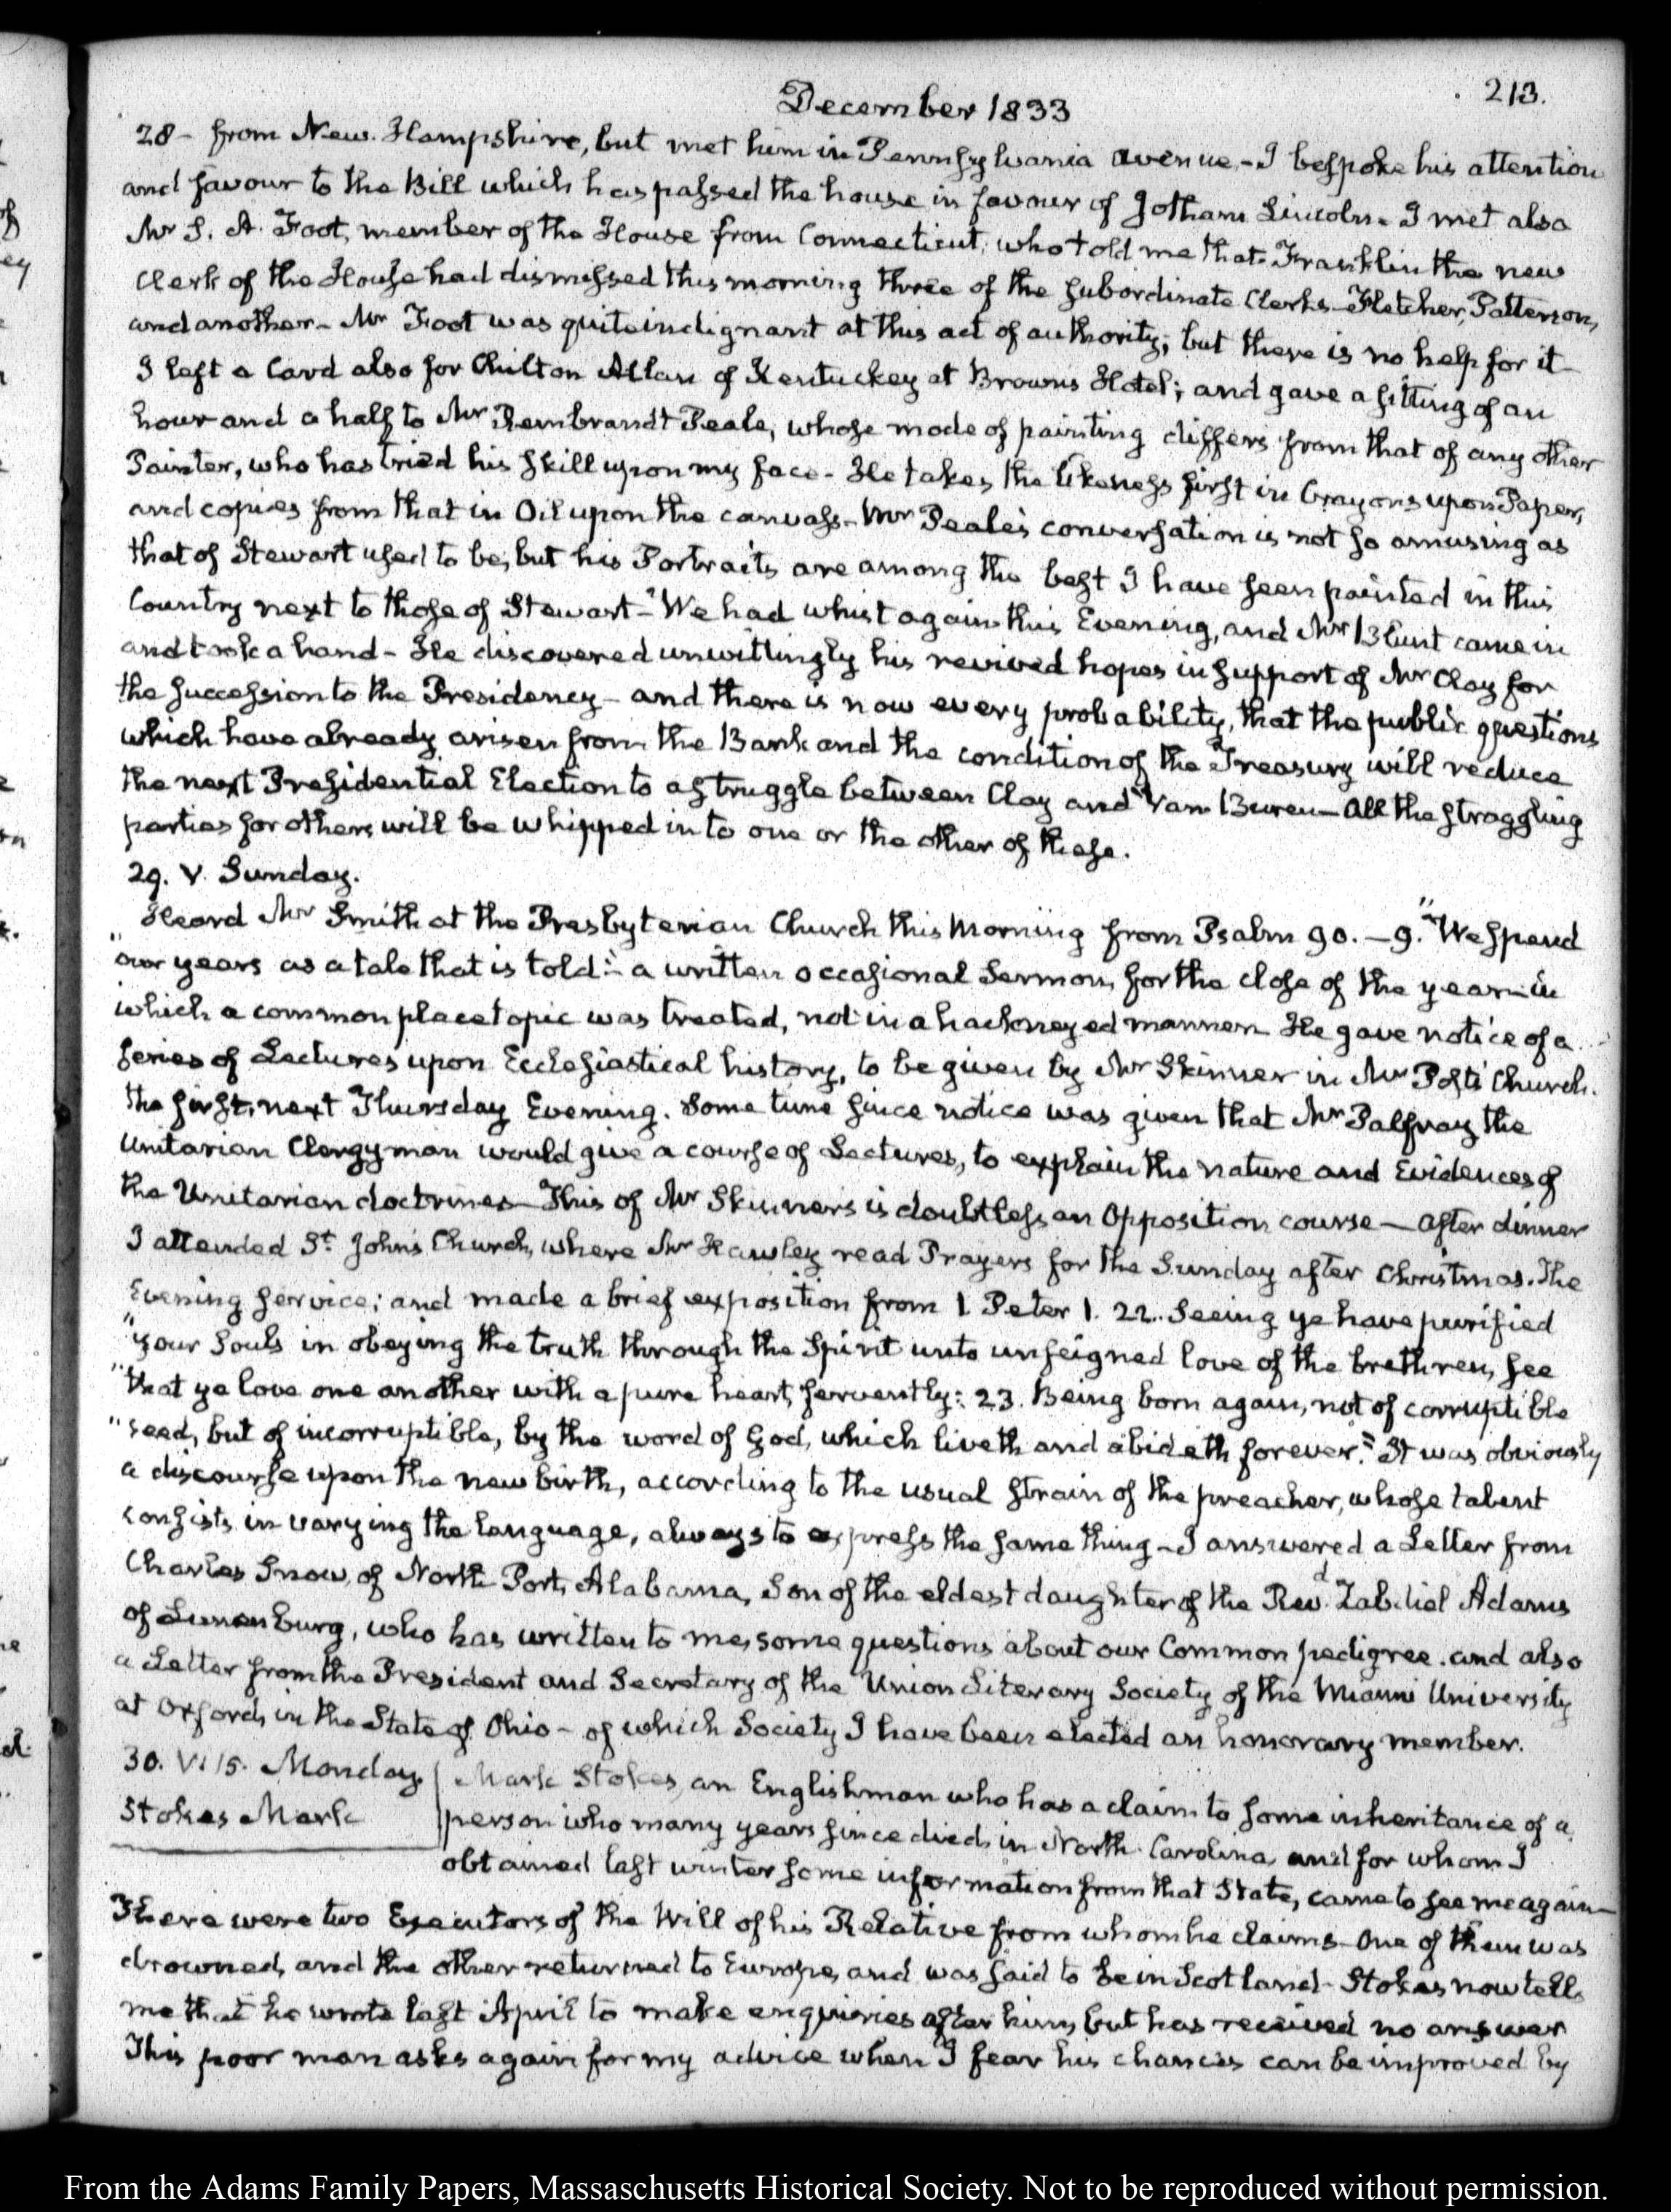 213.
December 1833
28 - from New-Hampshire, but met him in Pennsylvania avenue - I bespoke his attention
and favour to the Bill which has passed the house in favour of Jotham Lincoln - I met also
Mr S. A. Foot, member of the House from Connecticut, who told me that Franklin the new
Clerk of the House had dismissed this morning three of the subordinate Clerks - Fletcher, Patterson,
and another - Mr Foot was quite indignant at this act of authority; but there is no help for it -
I left a Card also for Chilton Allan of Kentuckey at Browns Hotel; and gave a sitting of an
hour and a half to Mr Rembrandt Peale, whose mode of painting differs from that of any other
Painter, who has tried his skill upon my face - He takes the likeness first in Crayons upon Paper,
and copies from that in Oil upon the canvass - Mr Peale's conversation is not so amusing as
that of Stewart used to be, but his Portraits are among the best I have seen painted in this
Country next to those of Stewart - We had whist again this Evening, and Mr Blunt came in
and took a hand - He discovered unwittingly his revived hopes in support of Mr Clay for
the succession to the Presidency - and there is now every probability, that the public questions
which have already arisen from the Bank and the condition of the Treasury will reduce
the next Presidential Election to a struggle between Clay and Van Buren - All the straggling
parties for others will be whipped in to one or the other of these.
29. V. Sunday.
Heard Mr Smith at the Presbyterian Church this Morning from Psalm 90. - 9. "We spend
"our years as a tale that is told" - a written occasional Sermon, for the close of the year - in
which a common place topic was treated, not in a hackneyed manner. He gave notice of a
series of Lectures upon Ecclesiastical history, to be given by Mr Skinner in Mr Post's Church.
the first, next Thursday Evening. Some time since notice was given that Mr Palfray the
Unitarian Clergyman would give a course of Lectures, to explain the nature and Evidences of
the Unitarian doctrines - This of Mr Skinner's is doubtless an Opposition course - After dinner
I attended St. John's Church, where Mr Hawley read Prayers for the Sunday after Christmas. The
Evening service; and made a brief exposition from 1 Peter 1. 22. Seeing ye have purified
"your Souls in obeying the truth through the Spirit unto unfeigned love of the brethren, see
"that ye love one another with a pure heart, fervently: 23. Being born again, not of corruptible
"seed, but of incorruptible, by the word of God, which liveth and abideth forever." It was obviously
a discourse upon the new birth, according to the usual strain of the preacher, whose talent
consists in varying the language, always to express the same thing - I answered a Letter from
Charles Snow, of North Port, Alabama, Son of the eldest daughter of the Revd. Zabdiel Adams
of Lunenburg, who has written to me, some questions about our Common pedigree. and also
a Letter from the President and Secretary of the Union Literary Society of the Miami University
at Oxford, in the State of Ohio - of which Society I have been elected an honorary member.
30. V. 15. Monday. Mark Stokes, an Englishman who has a claim to some inheritance of a
Stokes Mark person who many years since died, in North Carolina, and for whom I
obtained last winter some information from that State, came to see me again -
There were two Executors of the Will of his Relative from whom he claims - One of them was
drowned, and the other returned to Europe, and was said to be in Scotland - Stokes now tells
me that he wrote last April to make enquiries after him, but has received no answer
This poor man asks again for my advice when I fear his chances can be improved by
From the Adams Family Papers, Massachusetts Historical Society. Not to be reproduced without permission.